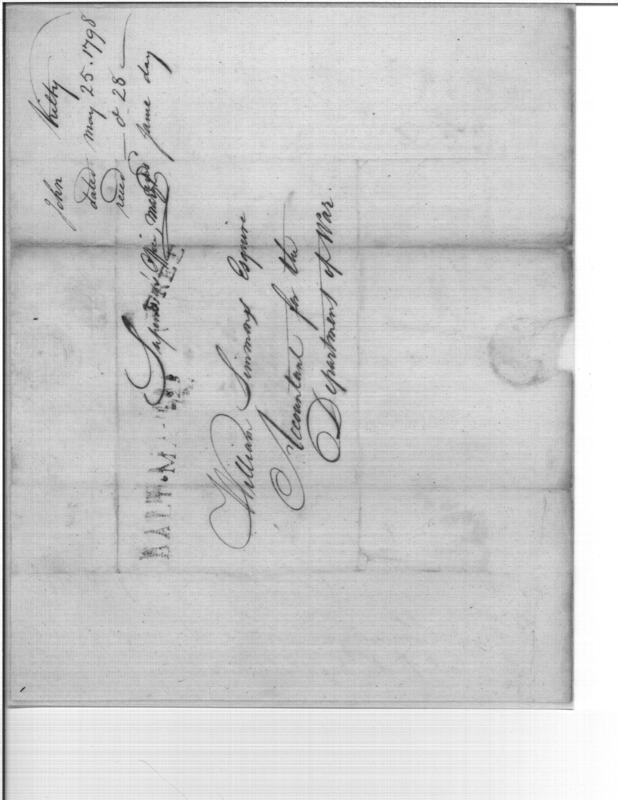 John Kilty
dated May 25. 1798
recied — do 28 —
same day
Supervisors' Office
BALT M
William Simmons Esquire
Accountant for the
Department of War.